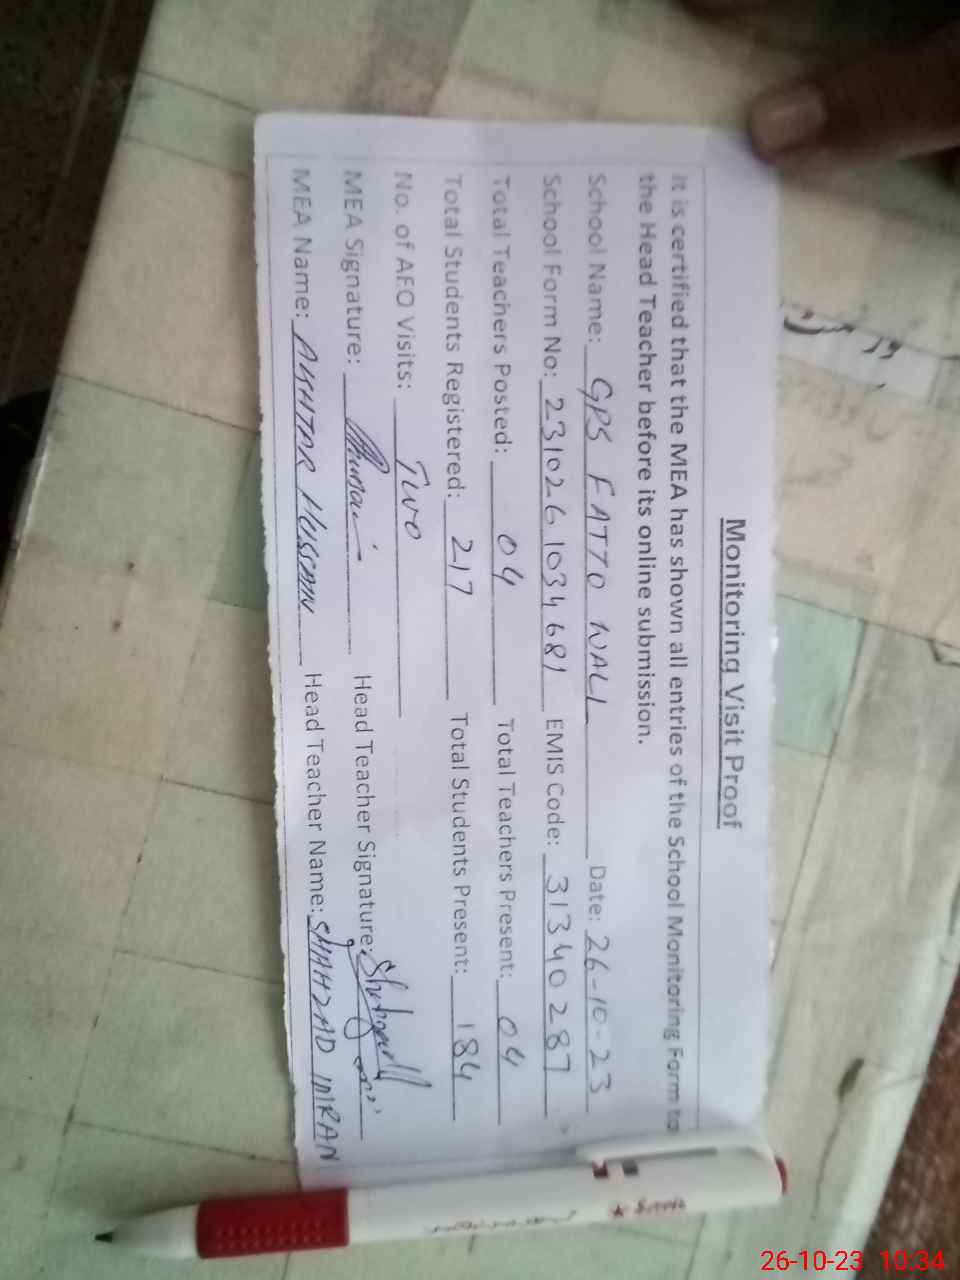 Monitoring Visit Proof
It is certified that the MEA has shown all entries of the School Monitoring Form to
the Head Teacher before its online submission.
School Name: GPS FATTO WALL Date: 26-10-23
School Form No: 231026 1034681 EMIS Code: 31340287
Total Teachers Posted: 04 Total Teachers Present: 04
Total Students Registered: 217 Total Students Present: 184
No. of AEO Visits: Two
MEA Signature: Head Teacher Signature:
MEA Name: AKHTAR HUSSAIN Head Teacher Name: SHAHZAD IMRAN
26-10-23 10:34